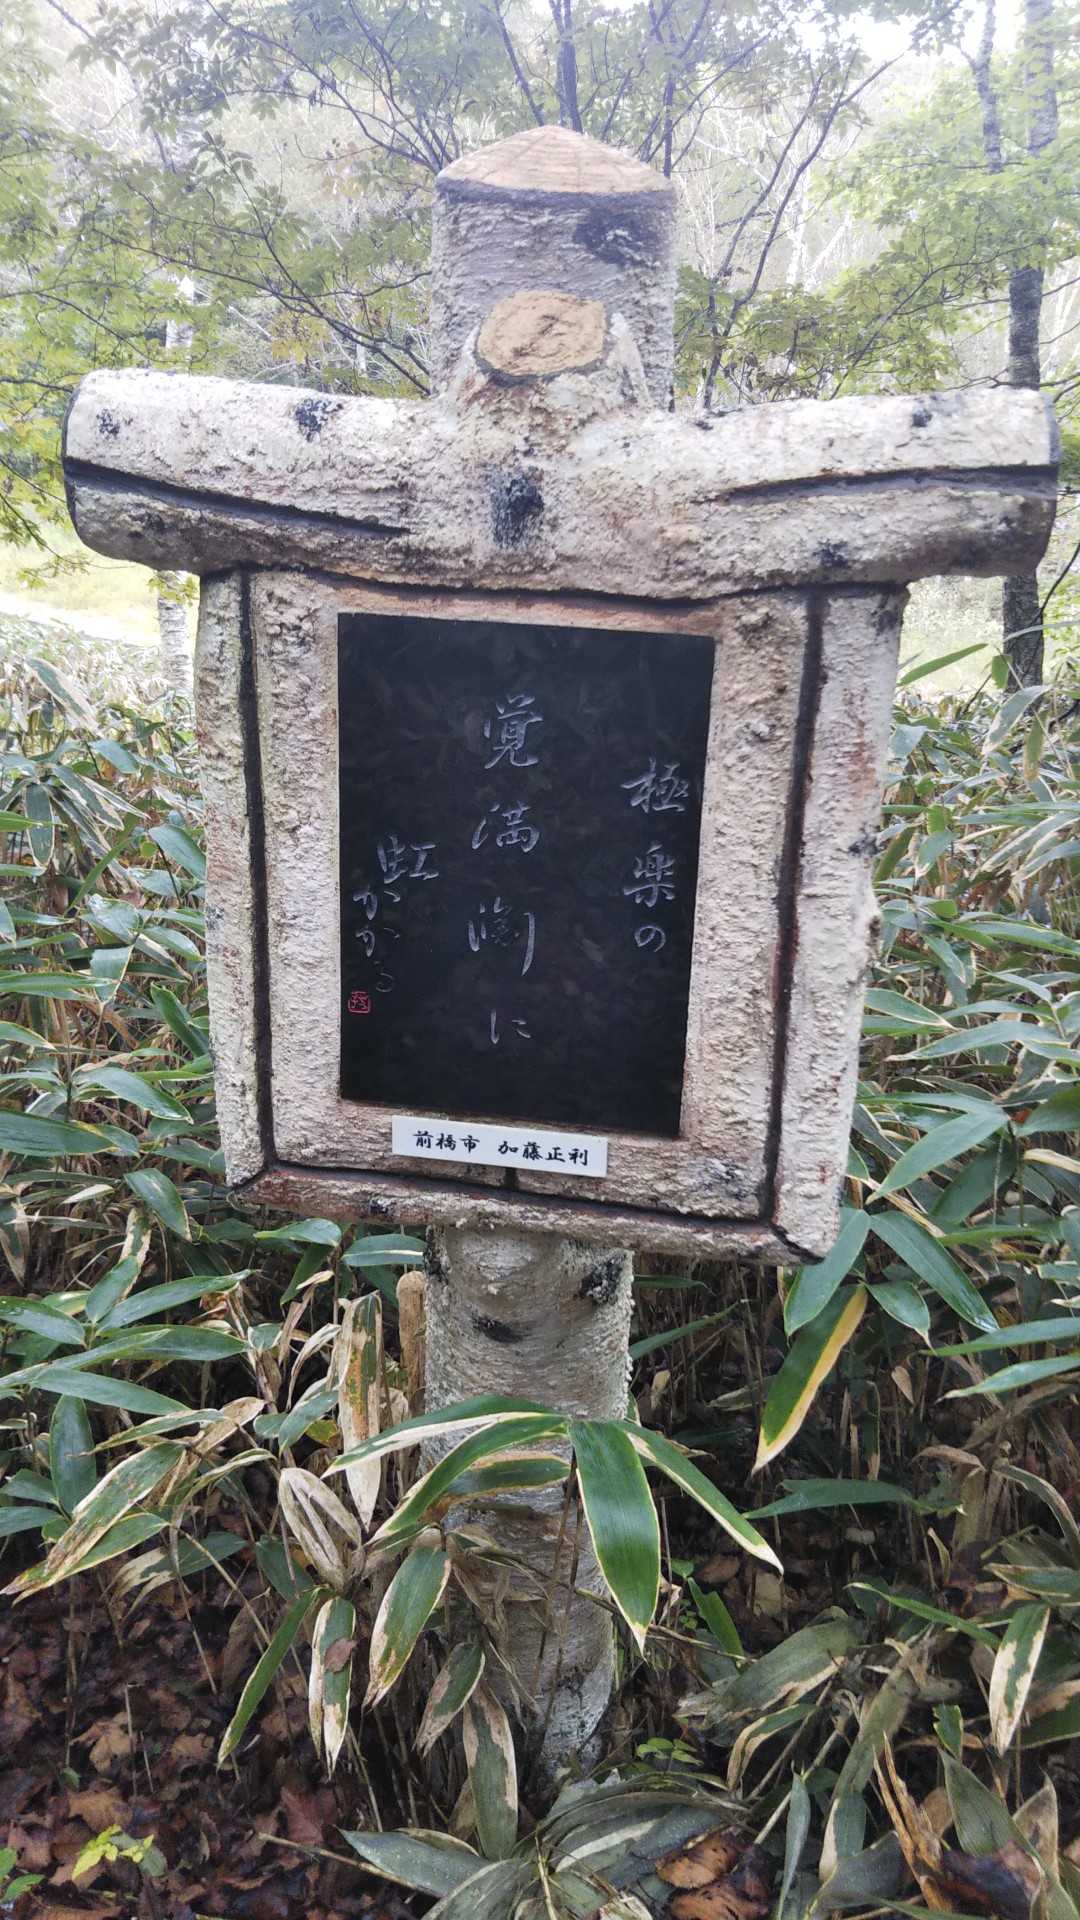 極楽の
覚満渕に
虹かかる
前橋市 加藤正利